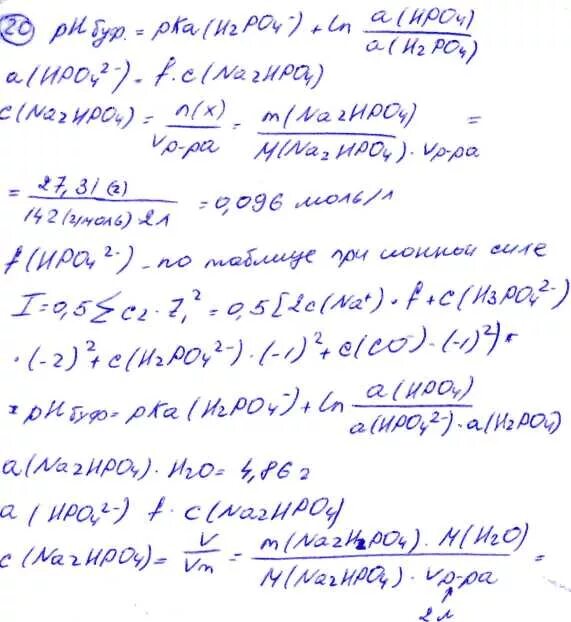 20 pH буф. = pKa(H2PO4⁻) + ln a(HPO4) / a(H2PO4)
a(HPO4²⁻) = f · c(Na2HPO4)
c(Na2HPO4) = n(x) / Vp-ра = m(Na2HPO4) / M(Na2HPO4) · Vp-ра =
= 27,31 (г) / 142 (г/моль) 2л = 0,096 моль/л
f(HPO4²⁻) - по таблице при ионной силе
I = 0,5 ∑ c2 · Z,² = 0,5 [2c(Na⁺) · f + c(H3PO4²⁻)
· (-2)² + c(H2PO4²⁻) · (-1)² + c(Cl⁻) · (-1)²)
pH буф = pKa(H2PO4⁻) + ln a(HPO4) / a(HPO4²⁻) · a(H2PO4)
a(Na2HPO4) · H2O = 4,86 г
a (HPO4²⁻) f · c(Na2HPO4)
c (Na2HPO4) = V / Vm = m(Na2H2PO4) · M(H2O) / M(Na2HPO4) · Vp-ра =
2л